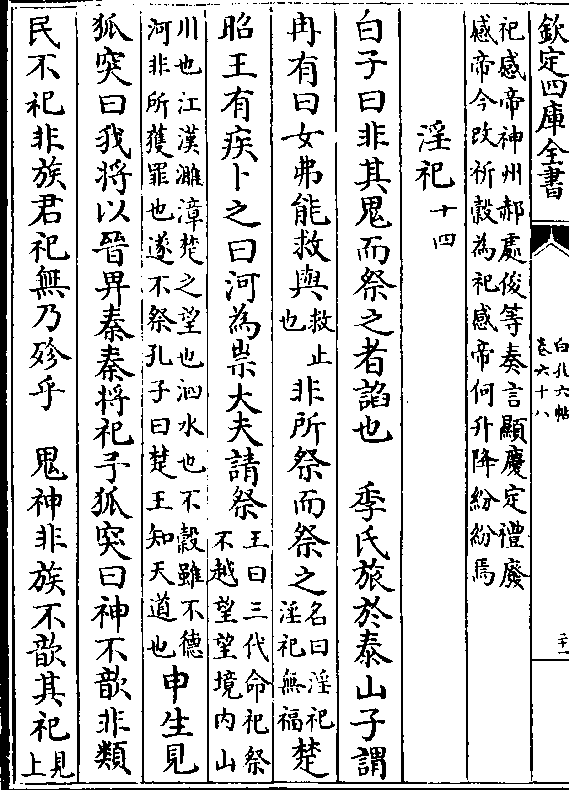 欽定四庫全書
白孔六帖
卷六十八
二十一
祀感帝神州郝處俊等奏言顯慶定禮廢
感帝今改祈穀為祀感帝何升降紛紛焉
淫祀十四
白子曰非其鬼而祭之者諂也　季氏旅於泰山子謂
冉有曰女弗能救與救止也非所祭而祭之名曰淫祀淫祀無福楚
昭王有疾卜之曰河為祟大夫請祭王曰三代命祀祭不越望望境内山
川也江漢濉漳楚之望也泗水也不穀雖不德河非所獲罪也遂不祭孔子曰楚王知天道也申生見
狐突曰我將以晉畀秦秦將祀予狐突曰神不歆非類
民不祀非族君祀無乃殄乎　鬼神非族不歆其祀見上